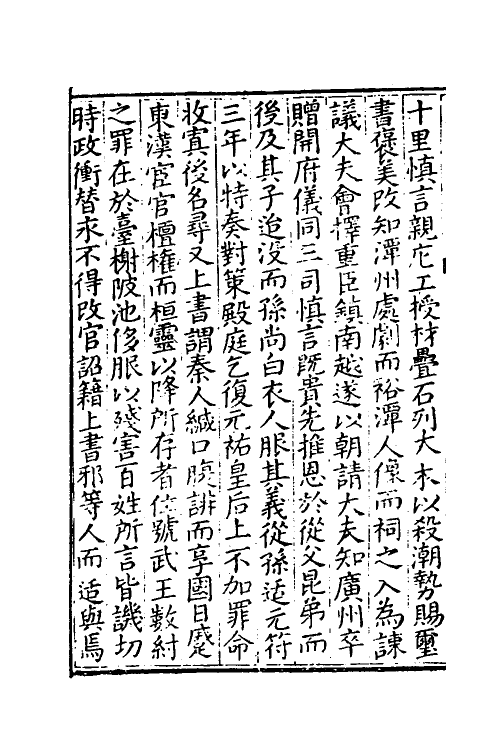 十里慎言親庀工授材疊石列大木以殺潮勢賜璽
書襃美改知潭州處劇而裕潭人像而祠之入為諫
議大夫會擇重臣鎮南越遂以朝請大夫知廣州卒
贈開府儀同三司慎言既貴先推恩於從父昆弟而
後及其子迨没而孫尚白衣人服其義從孫适元符
三年以特奏對策殿庭乞復元祐皇后上不加罪命
收寘後名尋又上書謂秦人緘口腹誹而享國日蹙
東漢宦官檀權而桓靈以降所存者位號武王數紂
之罪在於臺榭陂池侈服以殘害百姓所言皆譏切
時政衝替求不得改官詔籍上書邪等人而适與焉